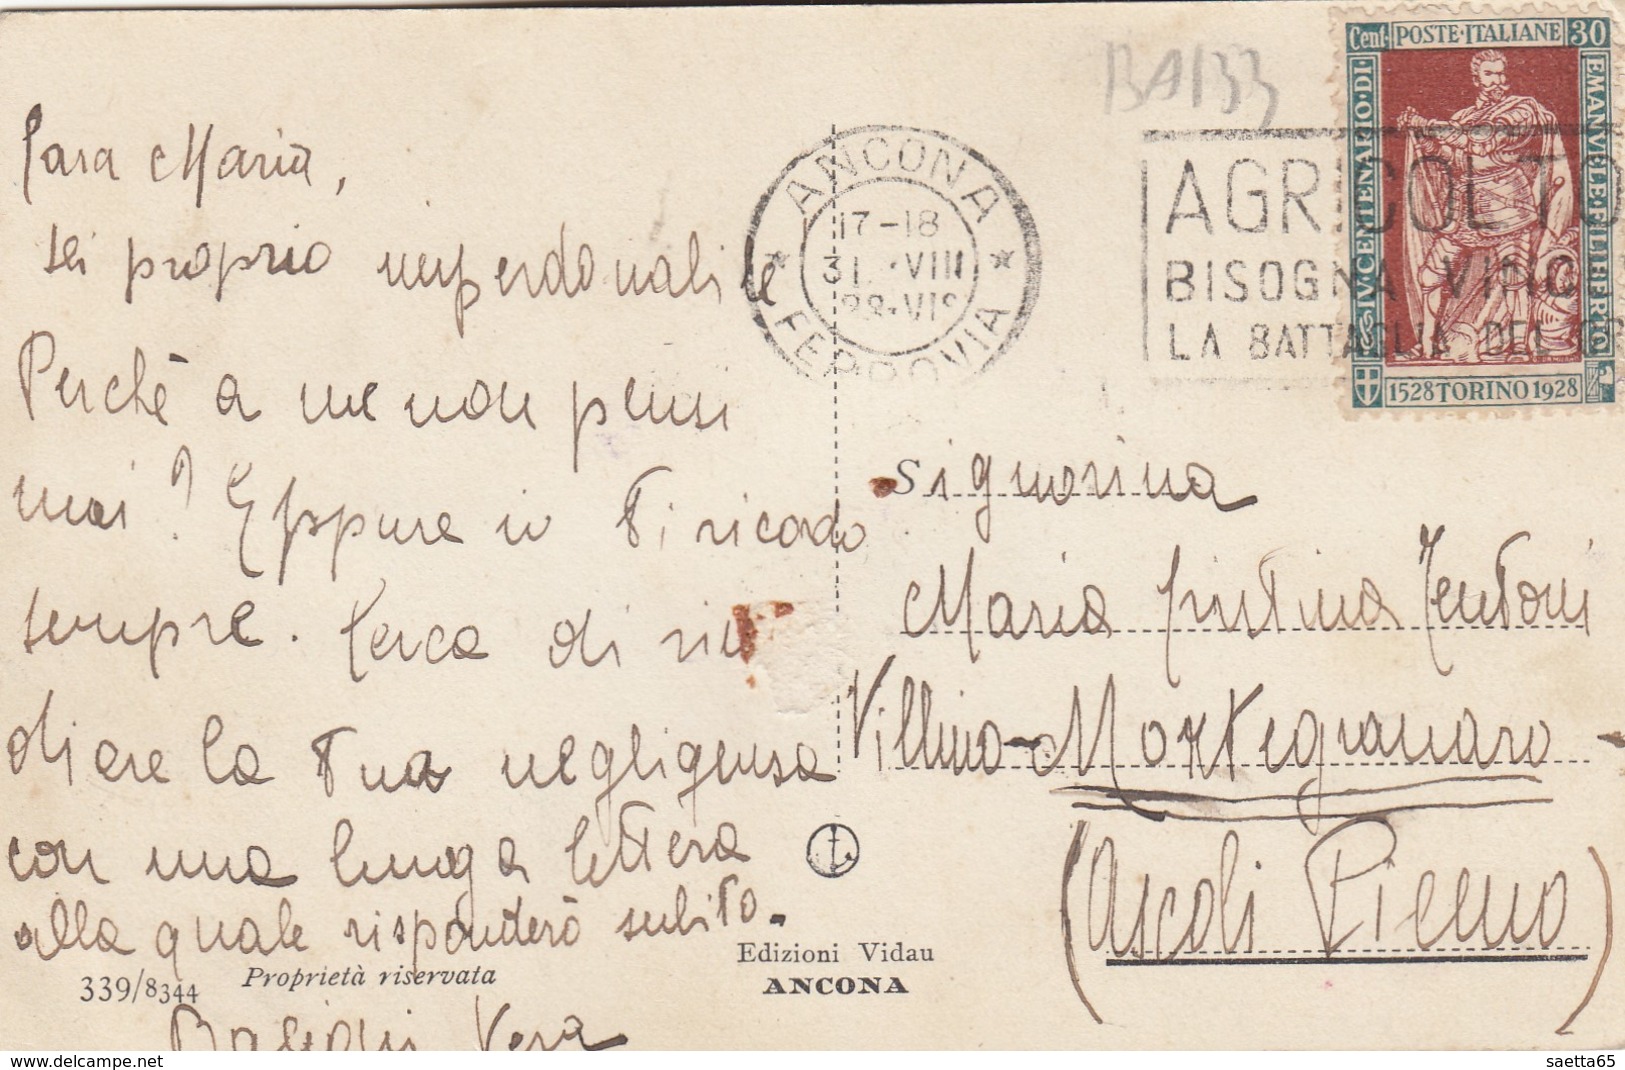 Cara Maria,
sei proprio imperdonabile
Perchè a me non pensi
mai? Eppure io Ti ricordo
sempre. Cerca di ri
diare la Tua negligenza
con una lunga lettera
alla quale risponderò subito.
Vera
339/8344 Proprietà riservata
Edizioni Vidau
ANCONA
BA133
ANCONA
17-18
31. VIII
28·VI
FERROVIA
AGRICOLTO
BISOGNA VINC
LA BATTAGLIA DEL
Cent. POSTE·ITALIANE 30
IV·CENTENARIO·DI
EMANVELE·FILIBERTO
1528 TORINO 1928
Signorina
Maria Cristina
Villino-Montegranaro-
(Ascoli Piceno)
www.delcampe.net
saetta65